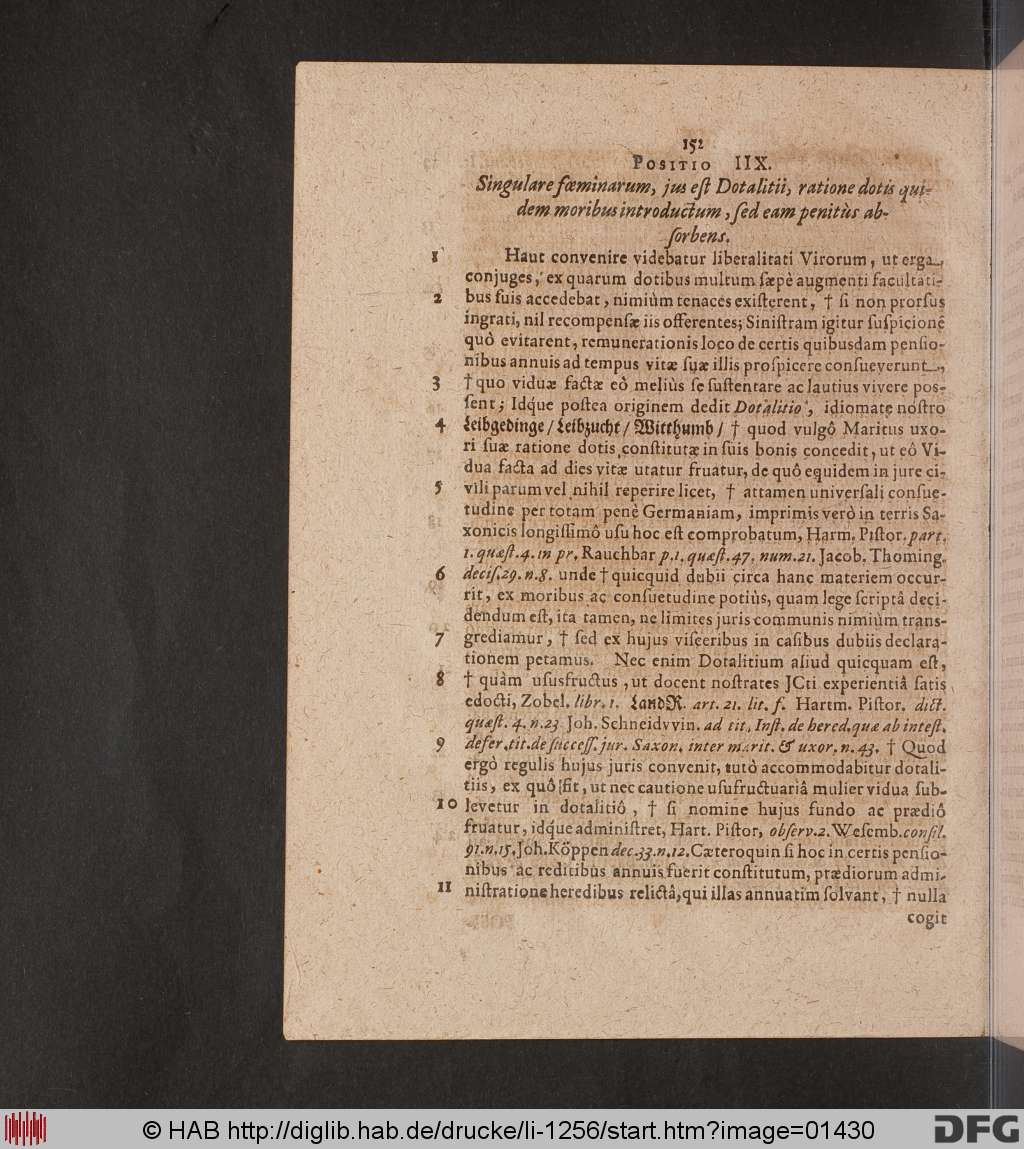 152
POSITIO IIX.
Singulare fœminarum, jus eſt Dotalitii, ratione dotis qui-
dem moribus introductum, ſed eam penitùs ab-
ſorbens.
1 Haut convenire videbatur liberalitati Virorum, ut erga,
conjuges, ex quarum dotibus multum ſæpè augmenti facultati-
2 bus ſuis accedebat, nimiùm tenaces exiſterent, † ſi non prorſus
ingrati, nil recompenſæ iis offerentes; Siniſtram igitur ſuſpicionẽ
quò evitarent, remunerationis loco de certis quibusdam penſio-
nibus annuis ad tempus vitæ ſuæ illis proſpicere conſueverunt,
3 † quo viduæ factæ eò meliùs ſe ſuſtentare ac lautius vivere poſ-
ſent; Idq́ue poſtea originem dedit Dotalitio, idiomate noſtro
4 Leibgedinge / Leibzucht / Witthumb / † quod vulgô Maritus uxo-
ri ſuæ ratione dotis conſtitutæ in ſuis bonis concedit, ut eô Vi-
dua facta ad dies vitæ utatur fruatur, de quô equidem in jure ci-
5 vili parum vel nihil reperire licet, † attamen univerſali conſue-
tudine per totam penè Germaniam, imprimis verò in terris Sa-
xonicis longiſſimô uſu hoc eſt comprobatum, Harm. Piſtor. part.
1. quæſt. 4. in pr. Rauchbar p. 1. quæſt. 47. num. 21. Jacob. Thoming.
6 deciſ. 29. n. 8. unde † quicquid dubii circa hanc materiem occur-
rit, ex moribus ac conſuetudine potiùs, quam lege ſcriptâ deci-
dendum eſt, ita tamen, ne limites juris communis nimiùm trans-
7 grediamur, † ſed ex hujus viſceribus in caſibus dubiis declara-
tionem petamus. Nec enim Dotalitium aliud quicquam eſt,
8 † quàm uſusfructus, ut docent noſtrates JCti experientiâ ſatis
edocti, Zobel. libr. 1. LandR. art. 21. lit. f. Hartm. Piſtor. dict.
quæſt. 4. n. 23 Joh. Schneidvvin. ad tit. Inſt. de hered. quæ ab inteſt.
9 defer. tit. de ſucceſſ. jur. Saxon. inter marit. & uxor. n. 43. † Quod
ergò regulis hujus juris convenit, tutò accommodabitur dotali-
tiis, ex quô fit, ut nec cautione uſufructuariâ mulier vidua ſub-
10 levetur in dotalitiô, † ſi nomine hujus fundo ac prædiô
fruatur, idq́ue adminiſtret, Hart. Piſtor, obſerv. 2. Weſemb. conſil.
91. n. 15. Joh. Köppen dec. 33. n. 12. Cæteroquin ſi hoc in certis penſio-
nibus ac reditibus annuis fuerit conſtitutum, prædiorum admi-
11 niſtratione heredibus relictâ, qui illas annuatim ſolvant, † nulla
cogit
© HAB http://diglib.hab.de/drucke/li-1256/start.htm?image=01430
DFG